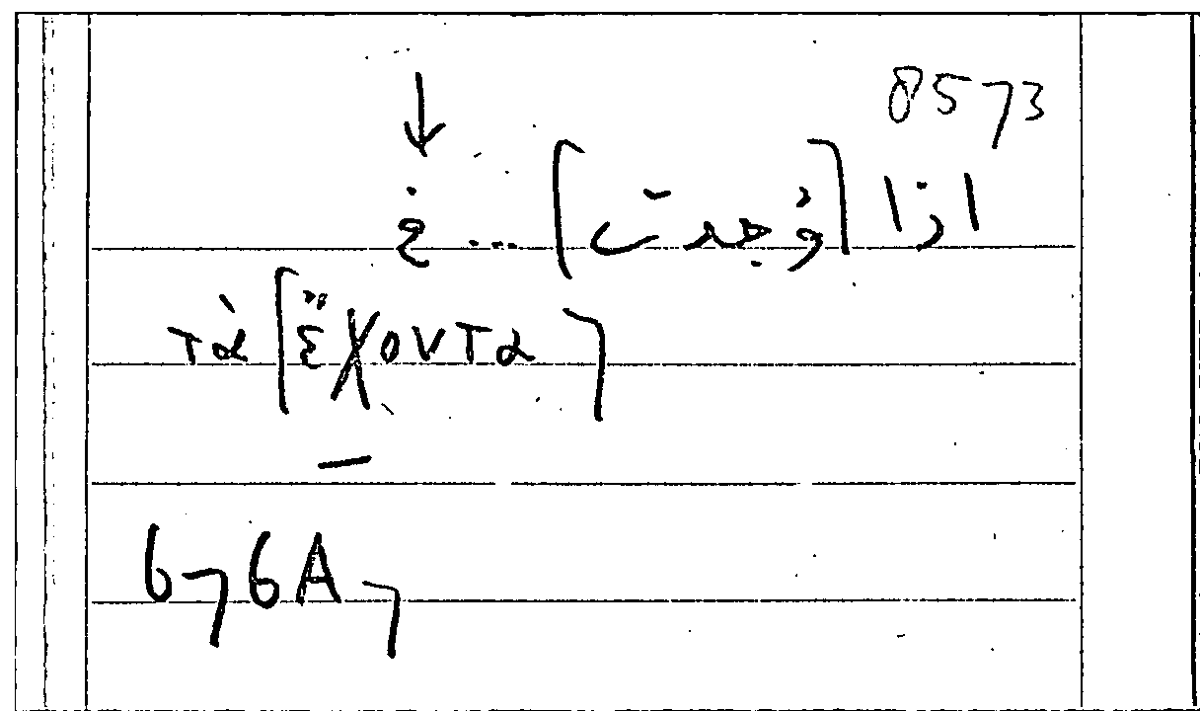 8573
↓
اذا [وُجدت] ... في
τὰ [ἔχοντα]
676A7